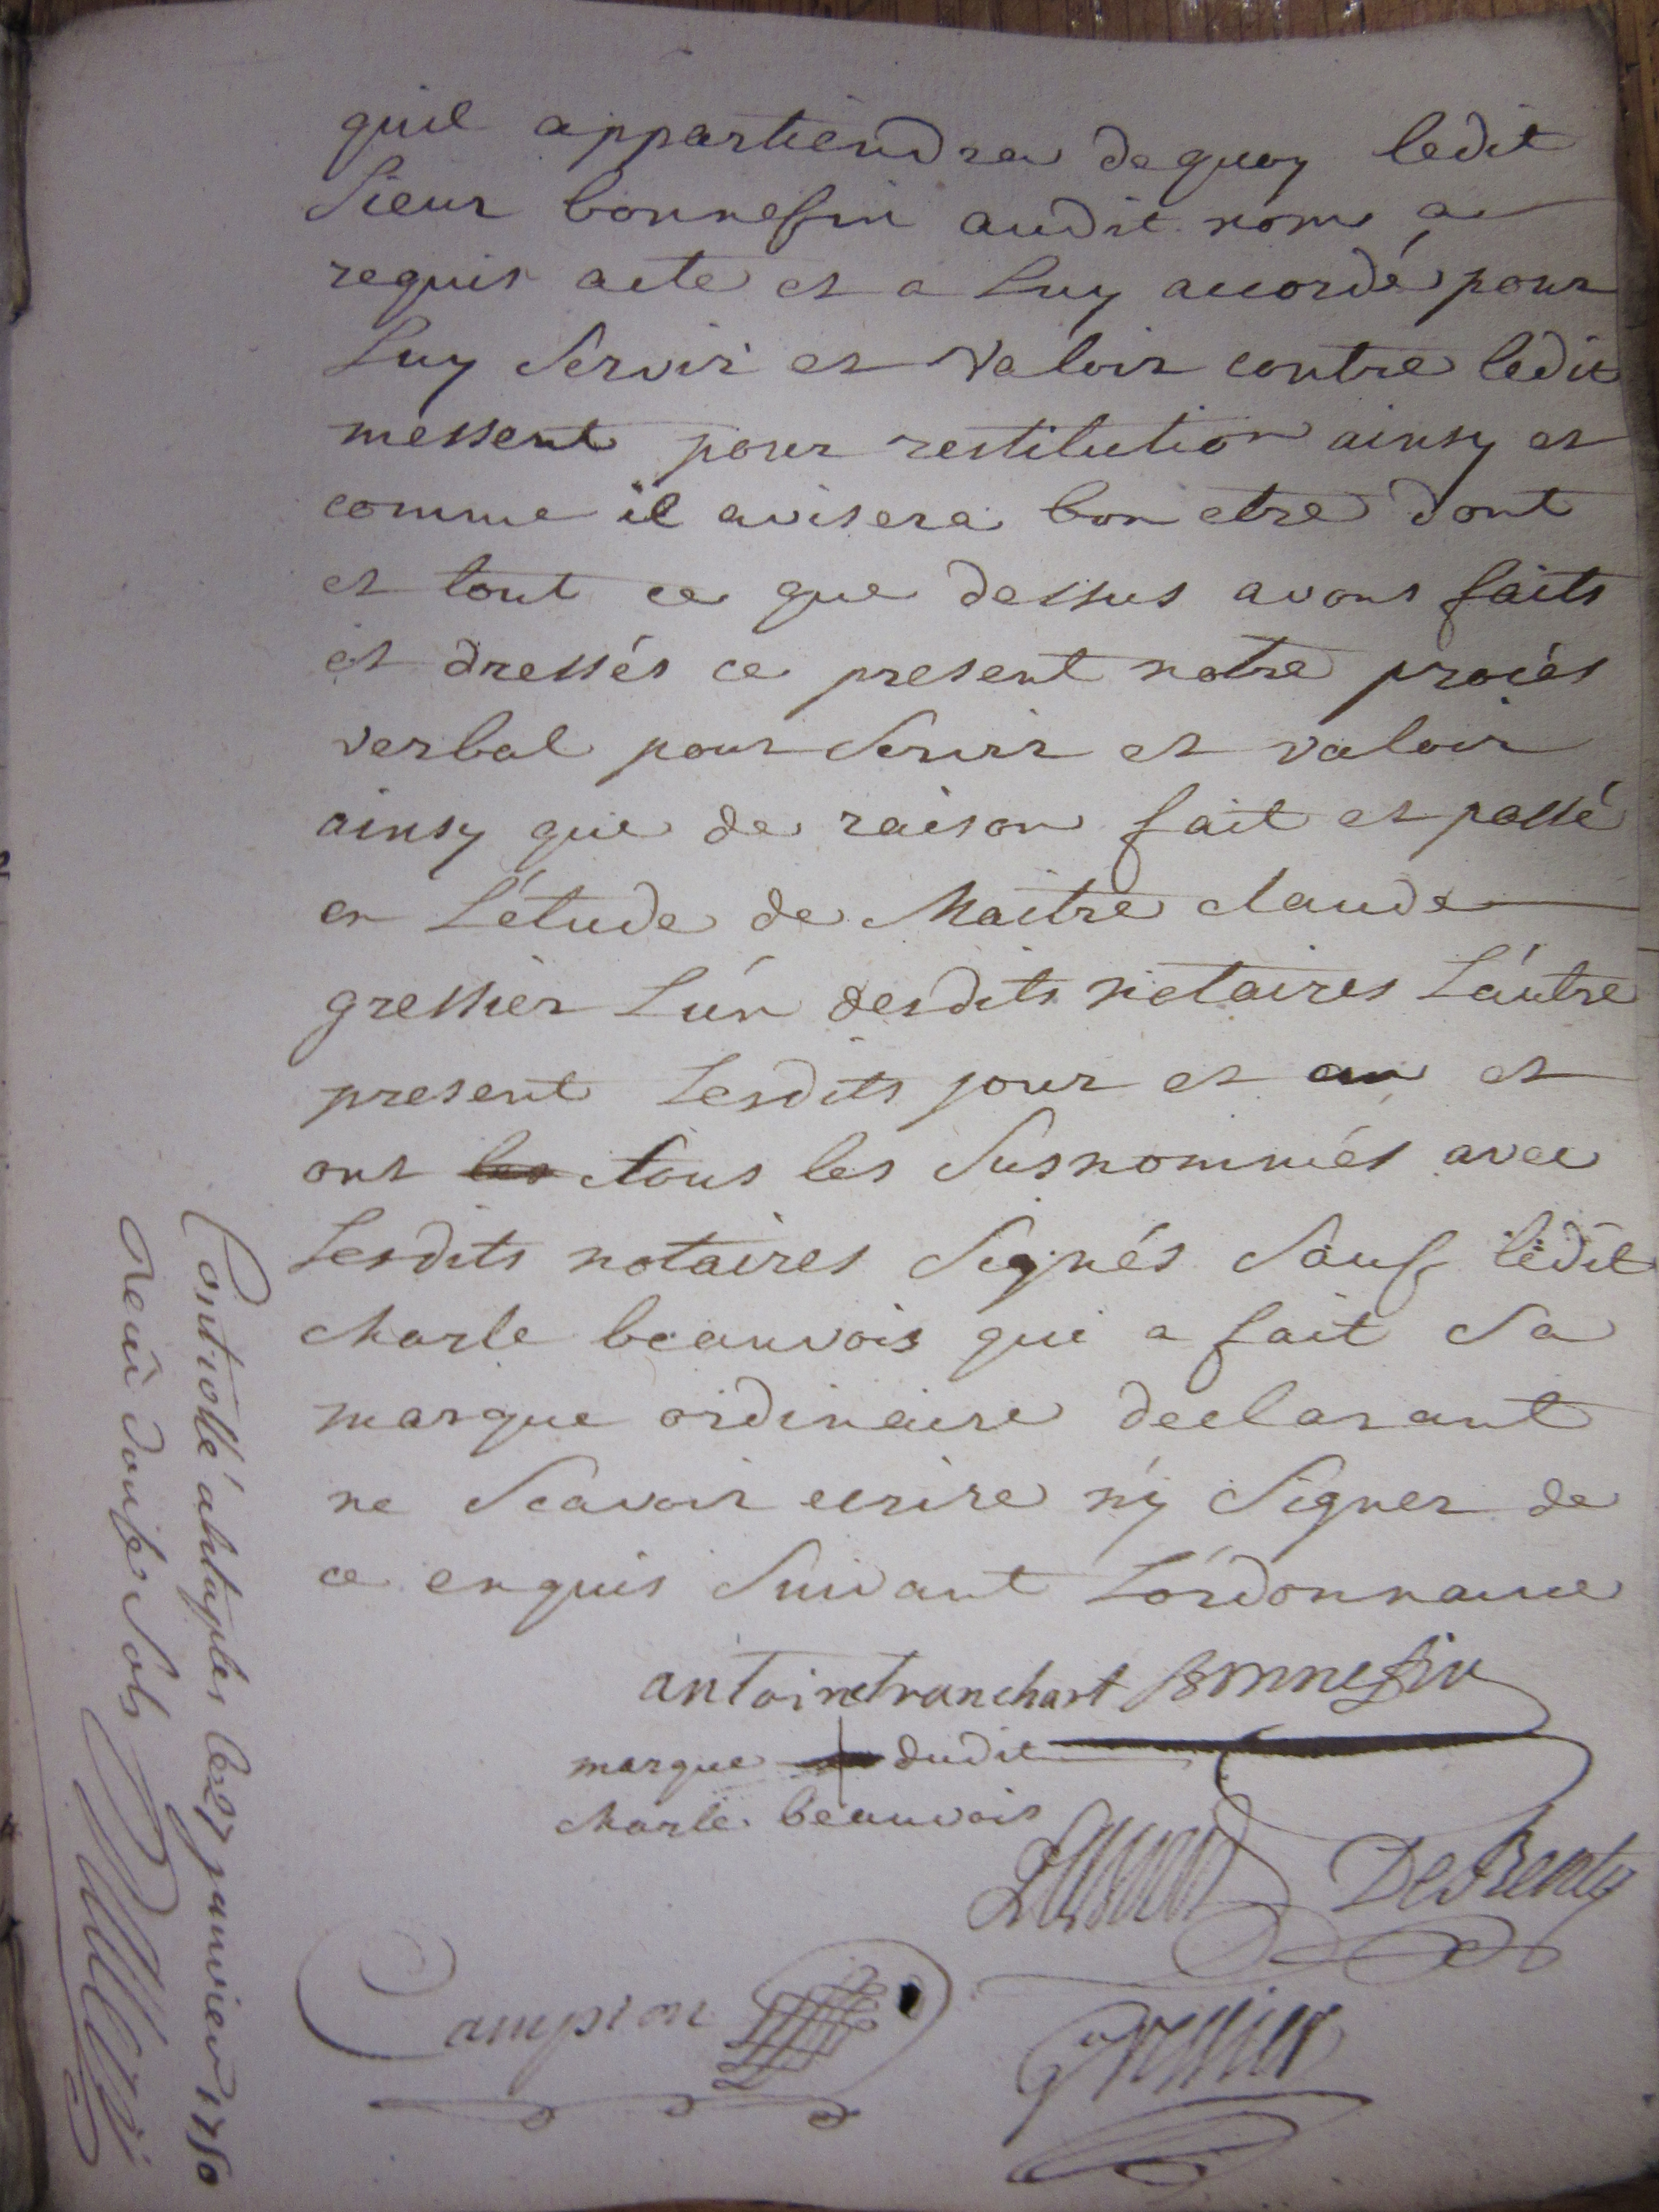 quil appartiendra dequoy ledit
Sieur bonnefin audit nom a
requis acte et a Luy accordé pour
Luy Servir et Valoir contre ledit
messent pour restitution ainsy et
comme il avisera bon etre dont
et tout ce que dessus avons faits
et dressés ce present notre procés
verbal pour Servir et valoir
ainsy que de raison fait et passé
en L'étude de Maitre claude
gressier L'un desdits notaires L'autre
present Lesdits jour et an et
ont tous les Susnommés avec
Lesdits notaires Signés Sauf ledit
charle beauvois qui a fait Sa
marque ordinaire declarant
ne Scavoir ecrire n'y Signer de
ce enquis Suivant L'ordonnance
antoine tranchart Bonnefin
marque dudit
charle beauvois
DeRenty
Campion
Gressier
Controllé a etaples le 27 janvier 1750
Receu douse Sols